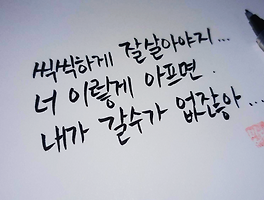 씩씩하게 잘살아야지...
너 이렇게 아프면.
내가 갈수가 없잖아...